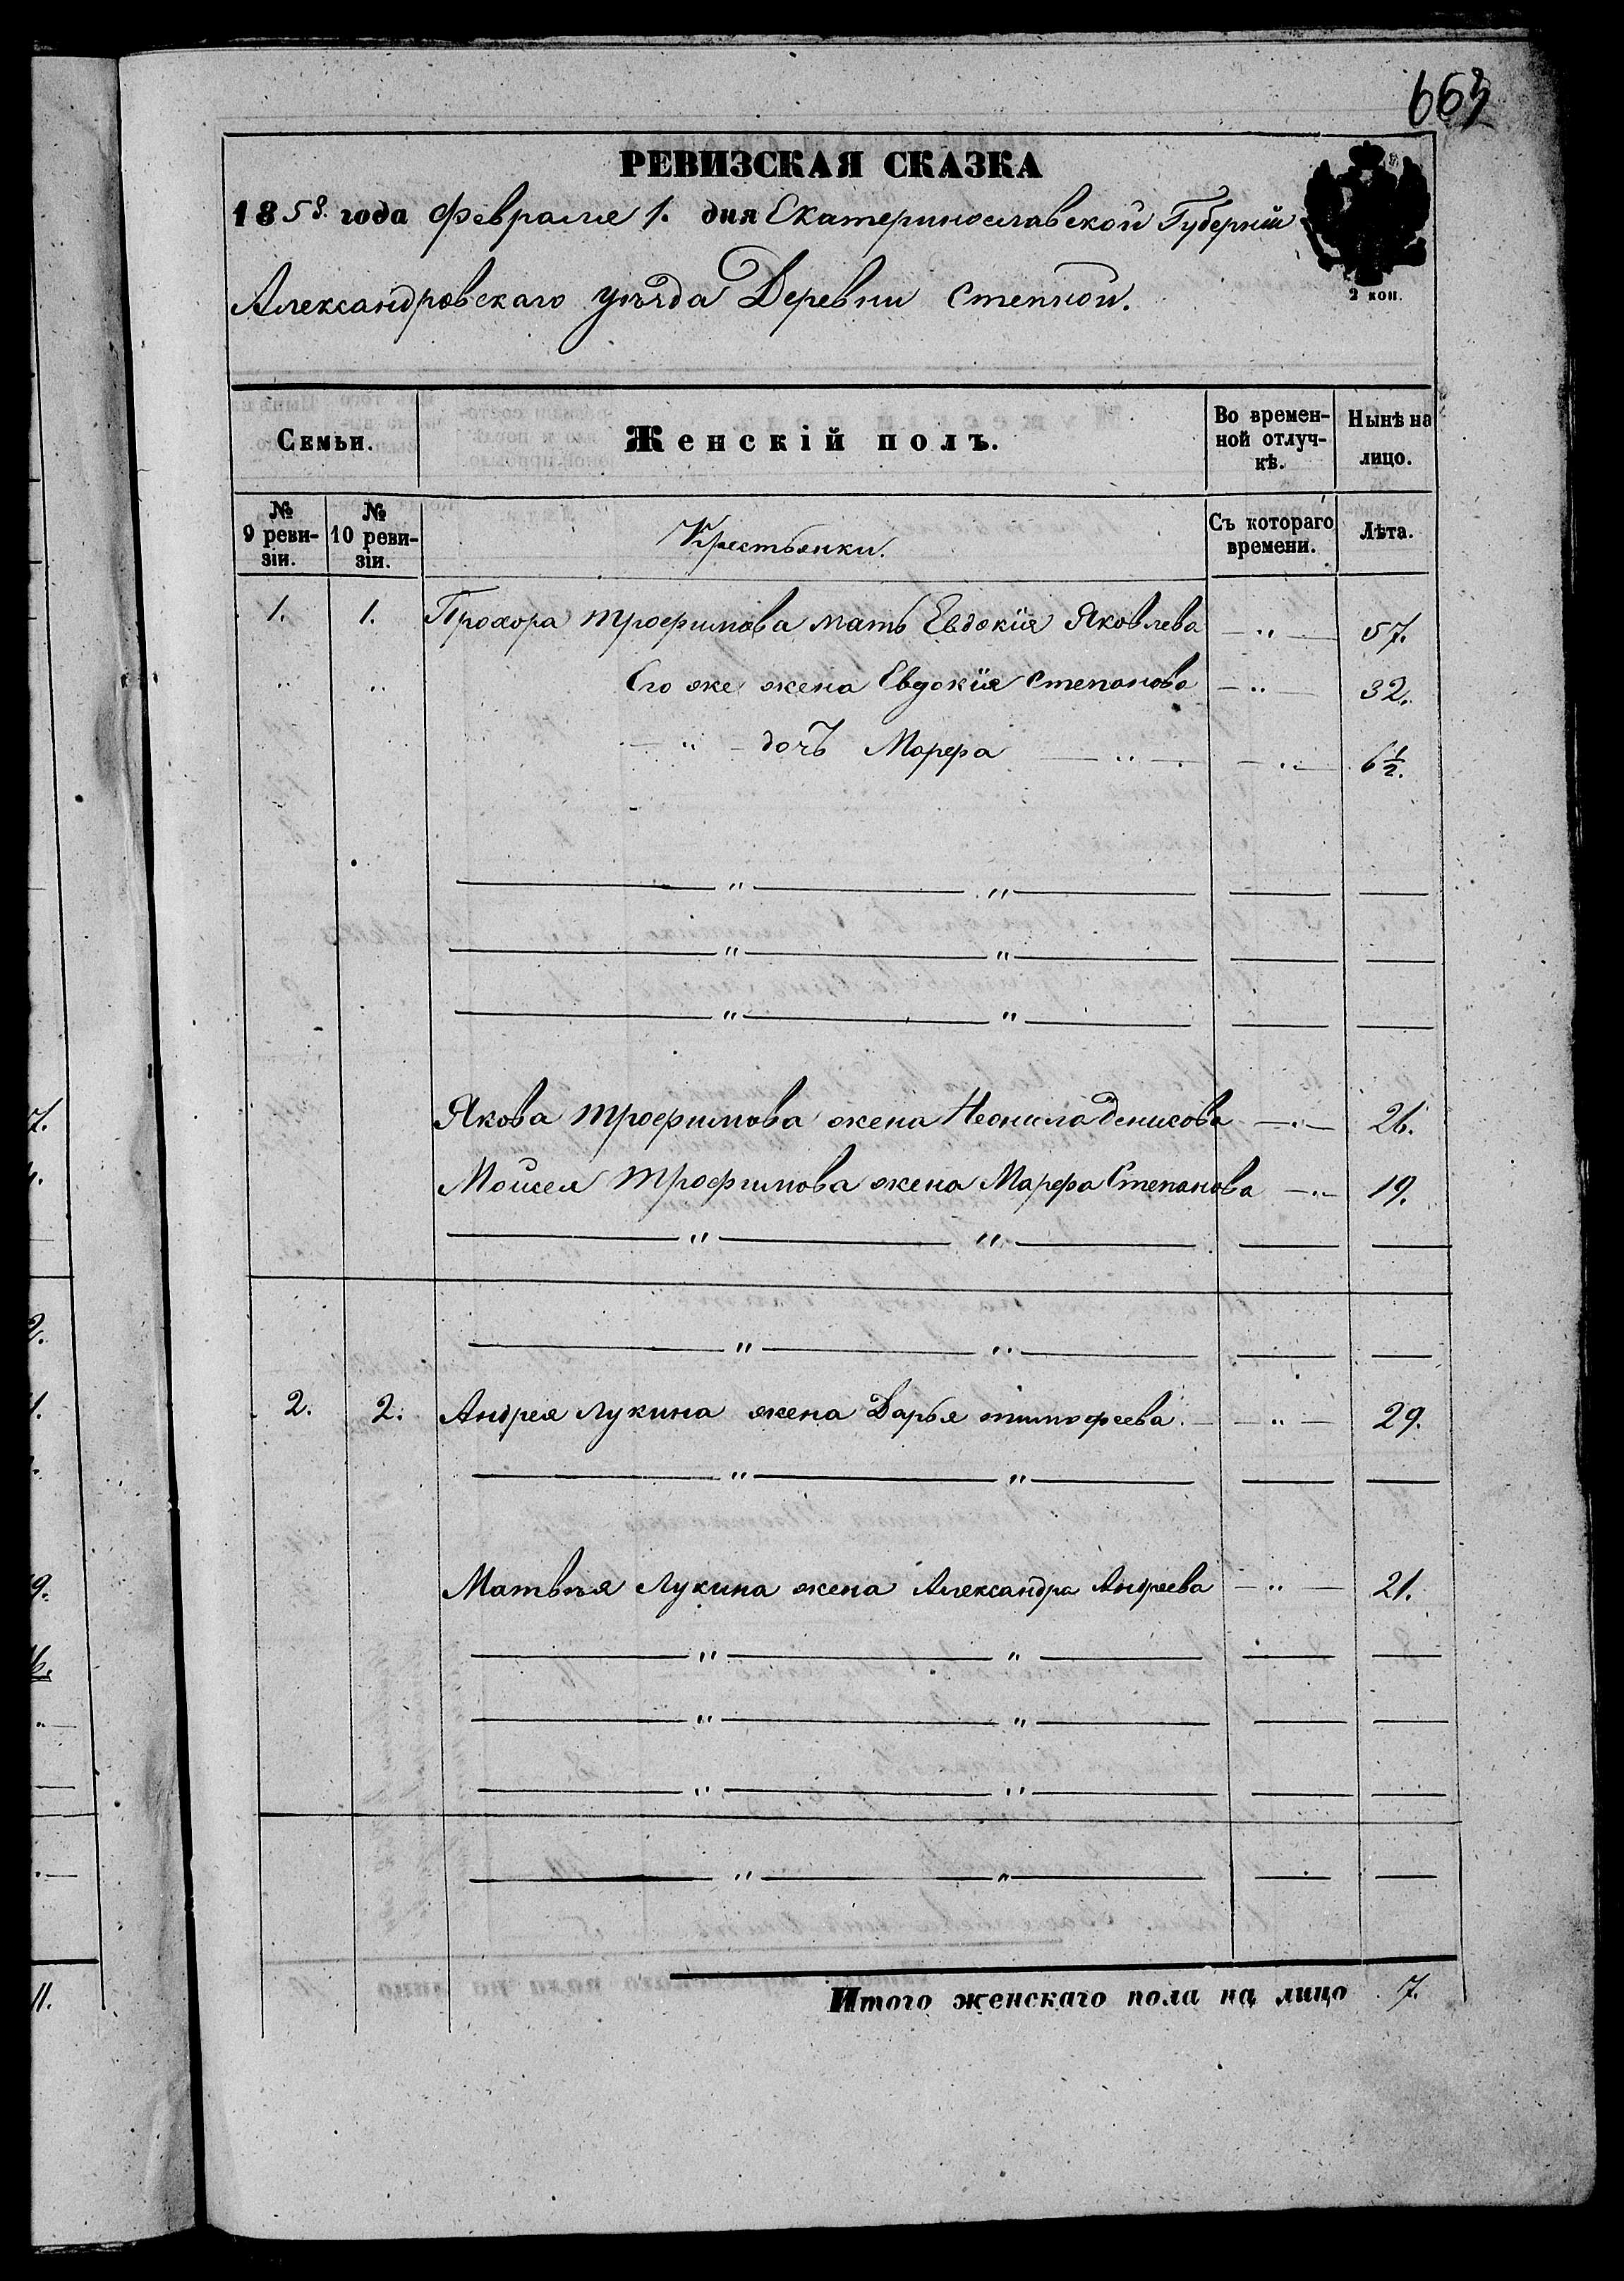 РЕВИЗСКАЯ СКАЗКА
1858. года Февраля 1. дня Екатеринославской Губерніи
2 коп.
Александровскаго уѣзда Деревни Степной.
Семьи. Женскій полъ. Во времен-ной отлуч-кѣ. Нынѣ на лицо.
№ 9 реви-зіи. № 10 реви-зіи. Крестьянки. Съ котораго времени. Лѣта.
1. 1. Прохора Трофимова мать Евдокія Яковлева — " — 57.
" " Его же жена Евдокія Степанова — " — 32.
— " — дочь Марфа — " — — " — 6 1/2.
— " — " — — —
— " — " — — —
— " — " — — —
Якова Трофимова жена Неонила Денисова — " — 26.
Моисея Трофимова жена Марфа Степанова — " — 19.
— " — " — — —
— " — " — — —
2. 2. Андрея Лукина жена Дарья Тимофеева — — " — 29.
— " — " — — —
Матвѣя Лукина жена Александра Андреева — " — 21.
— " — " — — —
— " — " — — —
— " — " — — —
— " — " — — —
Итого женскаго пола на лицо 7.